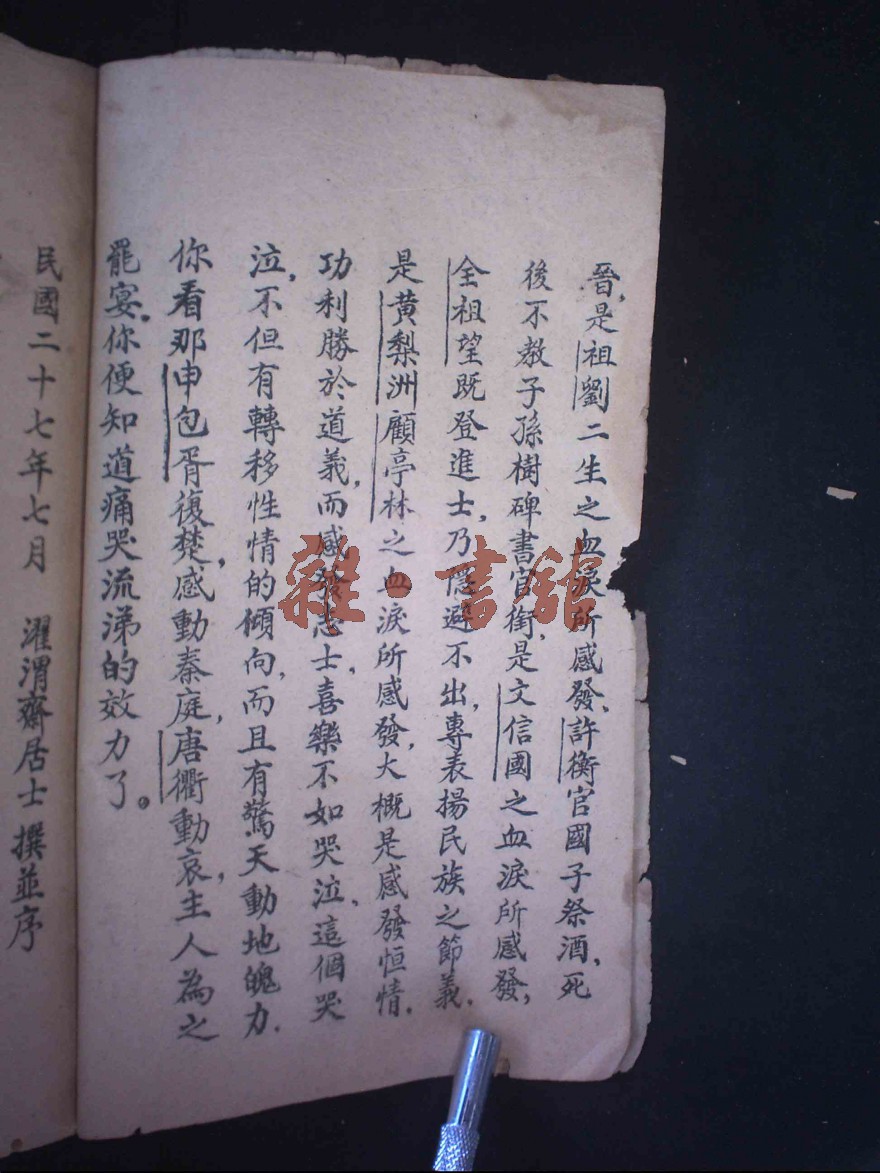 晉，是祖劉二生之血淚所感發、許衡官國子祭酒，死
後不敎子孫樹碑書官銜，是文信國之血淚所感發，
全祖望既登進士，乃隱避不出，專表揚民族之節義．
是黃梨洲顧亭林之血淚所感發，大概是感發恒情．
功利勝於道義，而感發志士，喜樂不如哭泣、這個哭
泣，不但有轉移性情的傾向，而且有驚天動地魄力．
你看那申包胥復楚，感動秦庭，唐衢動哀，主人為之
罷宴。你便知道痛哭流涕的效力了。
民國二十七年七月　濯渭齋居士撰並序
雜·書館